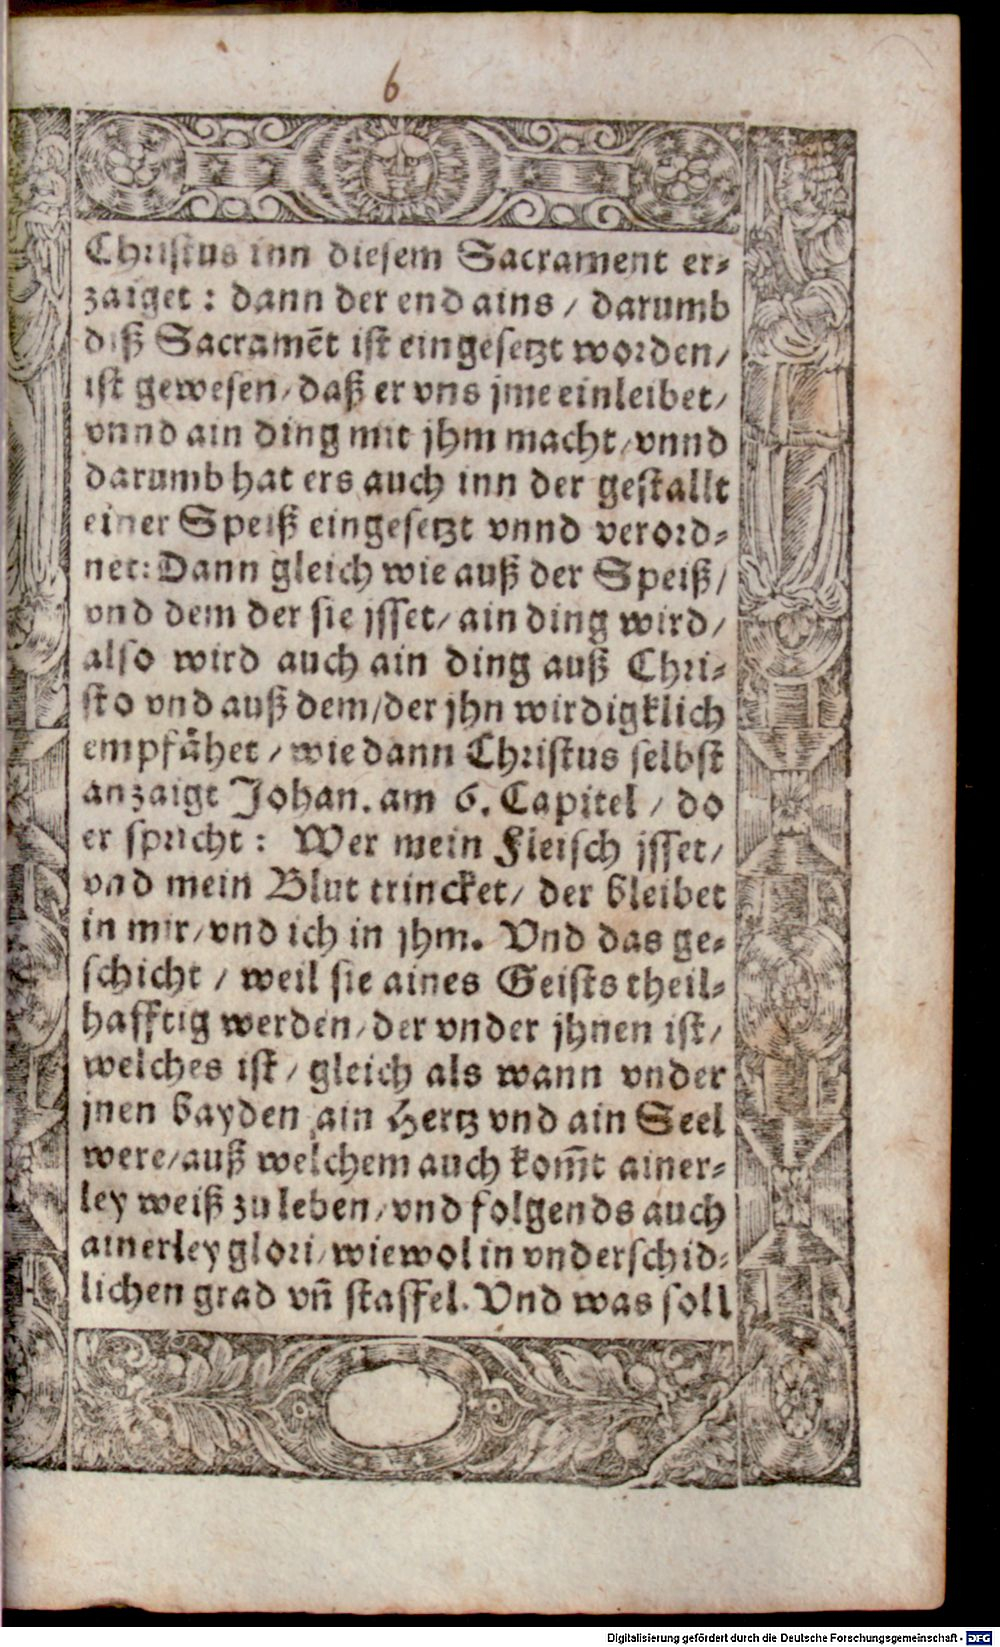 6
Christus inn diesem Sacrament er⸗
zaiget : dann der end ains / darumb
diß Sacramēt ist eingesetzt worden/
ist gewesen/ daß er vns jme einleibet/
vnnd ain ding mit jhm macht/ vnnd
darumb hat ers auch inn der gestallt
einer Speiß eingesetzt vnnd verord⸗
net: Dann gleich wie auß der Speiß/
vnd dem der sie jsset/ ain ding wird/
also wird auch ain ding auß Chri⸗
sto vnd auß dem/der jhn wirdigklich
empfåhet / wie dann Christus selbst
anzaigt Johan. am 6. Capitel / do
er spricht : Wer mein Fleisch jsset/
vnd mein Blut trincket/ der bleibet
in mir/ vnd ich in jhm. Vnd das ge⸗
schicht / weil sie aines Geists theil⸗
hafftig werden/ der vnder jhnen ist/
welches ist / gleich als wann vnder
jnen bayden ain Hertz vnd ain Seel
were/auß welchem auch kom̄t ainer⸗
ley weiß zu leben/ vnd folgends auch
ainerley glori/ wiewol in vnderschid⸗
lichen grad vn̄ staffel. Vnd was soll
Digitalisierung gefördert durch die Deutsche Forschungsgemeinschaft - DFG